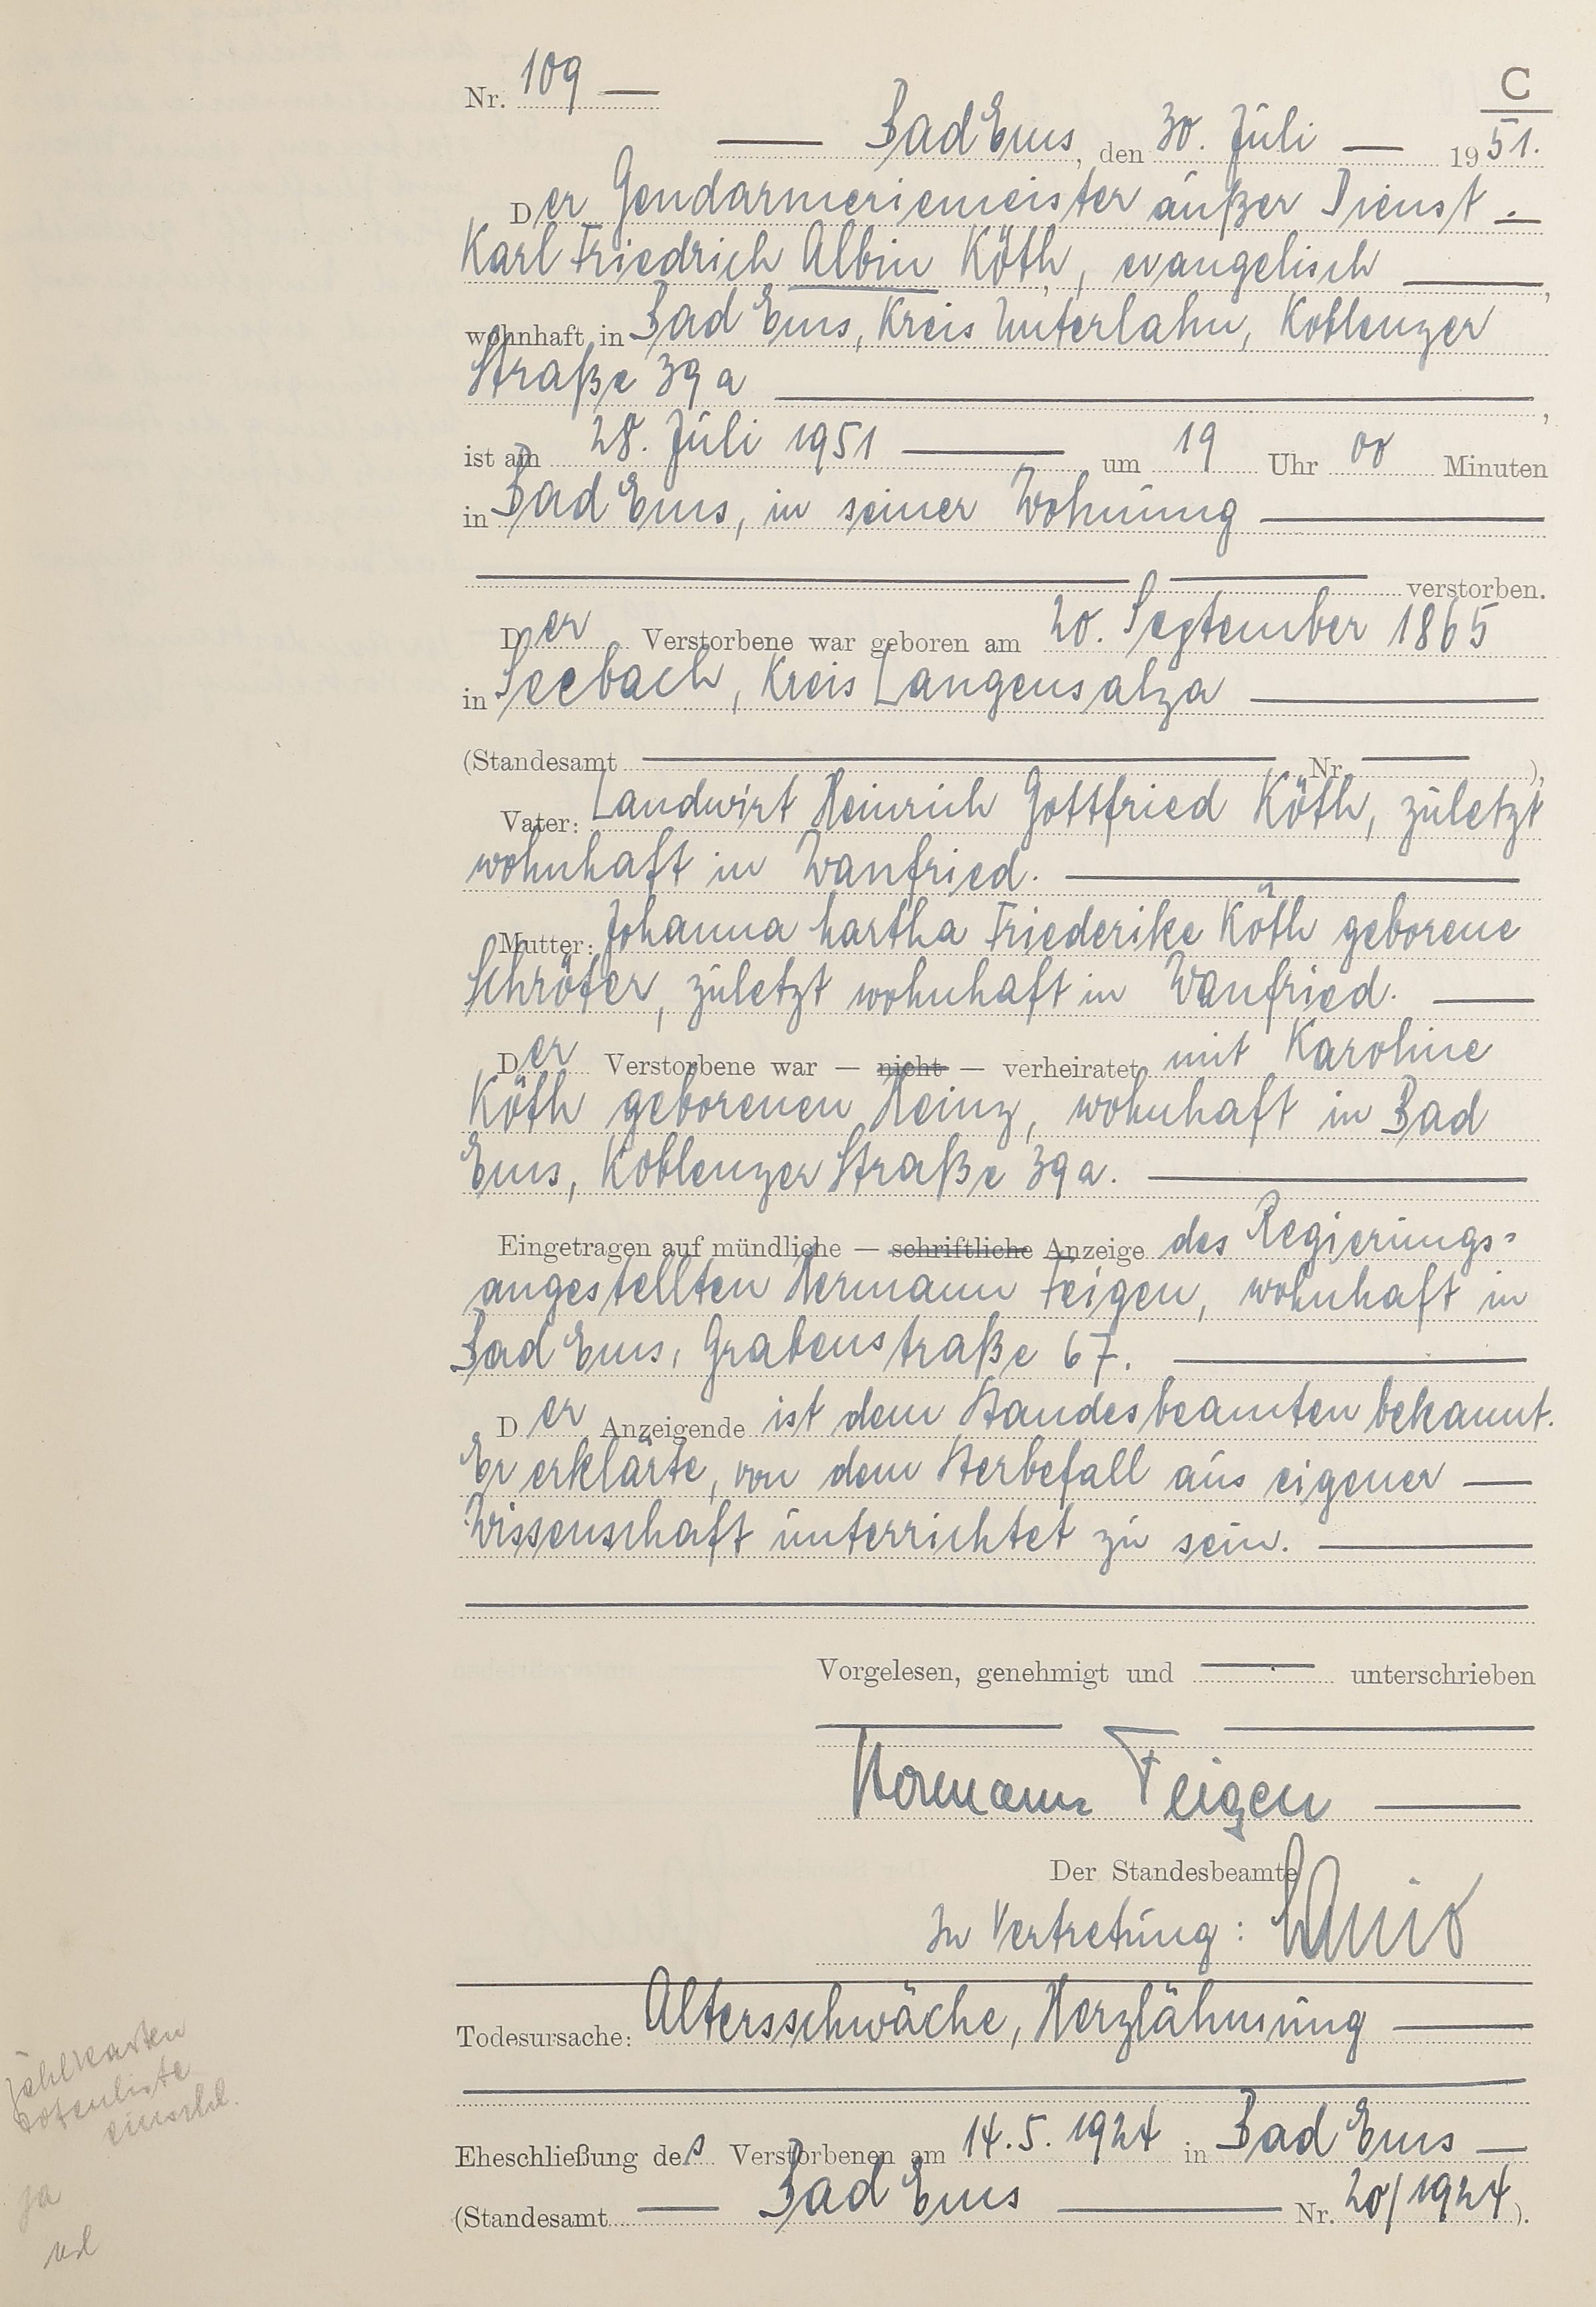 Nr. 109 —
C
— Bad Ems, den 30. Juli — 1951.
Der Gendarmeriemeister außer Dienst —
Karl Friedrich Albin Köth, evangelisch —,
wohnhaft in Bad Ems, Kreis Unterlahn, Koblenzer
Straße 39 a —,
ist am 28. Juli 1951 — um 19 Uhr 00 Minuten
in Bad Ems, in seiner Wohnung —
— verstorben.
Der Verstorbene war geboren am 20. September 1865
in Seebach, Kreis Langensalza —
(Standesamt — Nr. —),
Vater: Landwirt Heinrich Gottfried Köth, zuletzt
wohnhaft in Wanfried. —
Mutter: Johanna Martha Friederike Köth geborene
Schröter, zuletzt wohnhaft in Wanfried. —
Der Verstorbene war — nicht — verheiratet mit Karoline
Köth geborenen Heinz, wohnhaft in Bad
Ems, Koblenzer Straße 39a. —
Eingetragen auf mündliche — schriftliche Anzeige des Regierungs-
angestellten Hermann Feigen, wohnhaft in
Bad Ems, Grabenstraße 67. —
Der Anzeigende ist dem Standesbeamten bekannt.
Er erklärte, von dem Sterbefall aus eigener —
Wissenschaft unterrichtet zu sein. —
Vorgelesen, genehmigt und — unterschrieben
Hermann Feigen —
Der Standesbeamte
In Vertretung:
Todesursache: Altersschwäche, Herzlähmung —
Zählkarten
Totenliste
Eheschließung des Verstorbenen am 14.5.1924 in Bad Ems —
(Standesamt — Bad Ems — Nr. 20/1924).
ja